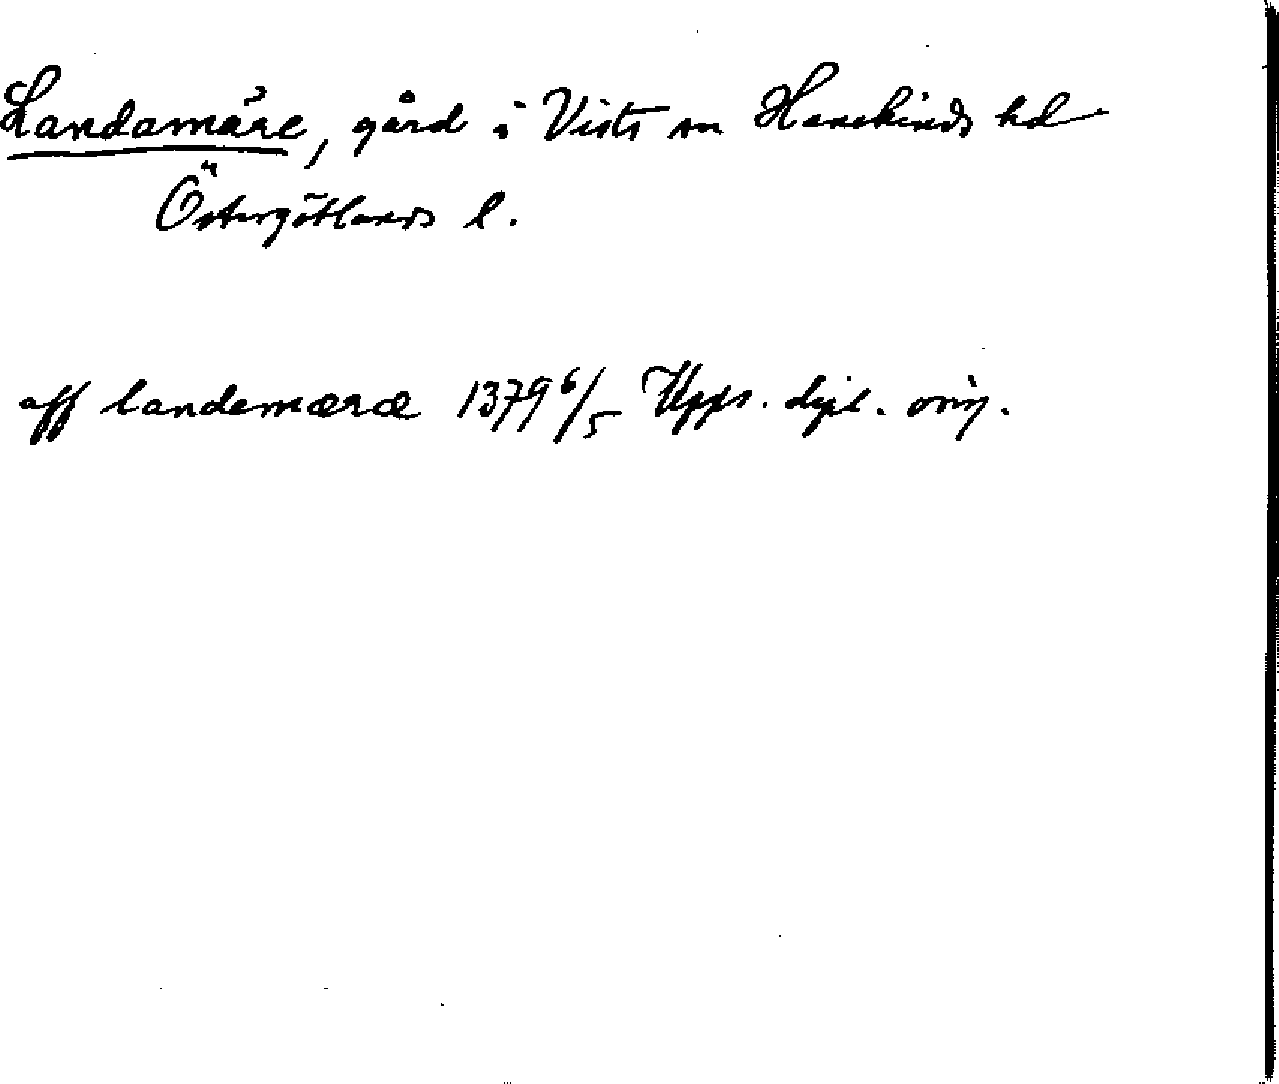 Landamäre, gård i Vists sn Hanekinds hd
Östergötlands l.
aff landemæræ 1379 6/5 Upps. dipl. orig.